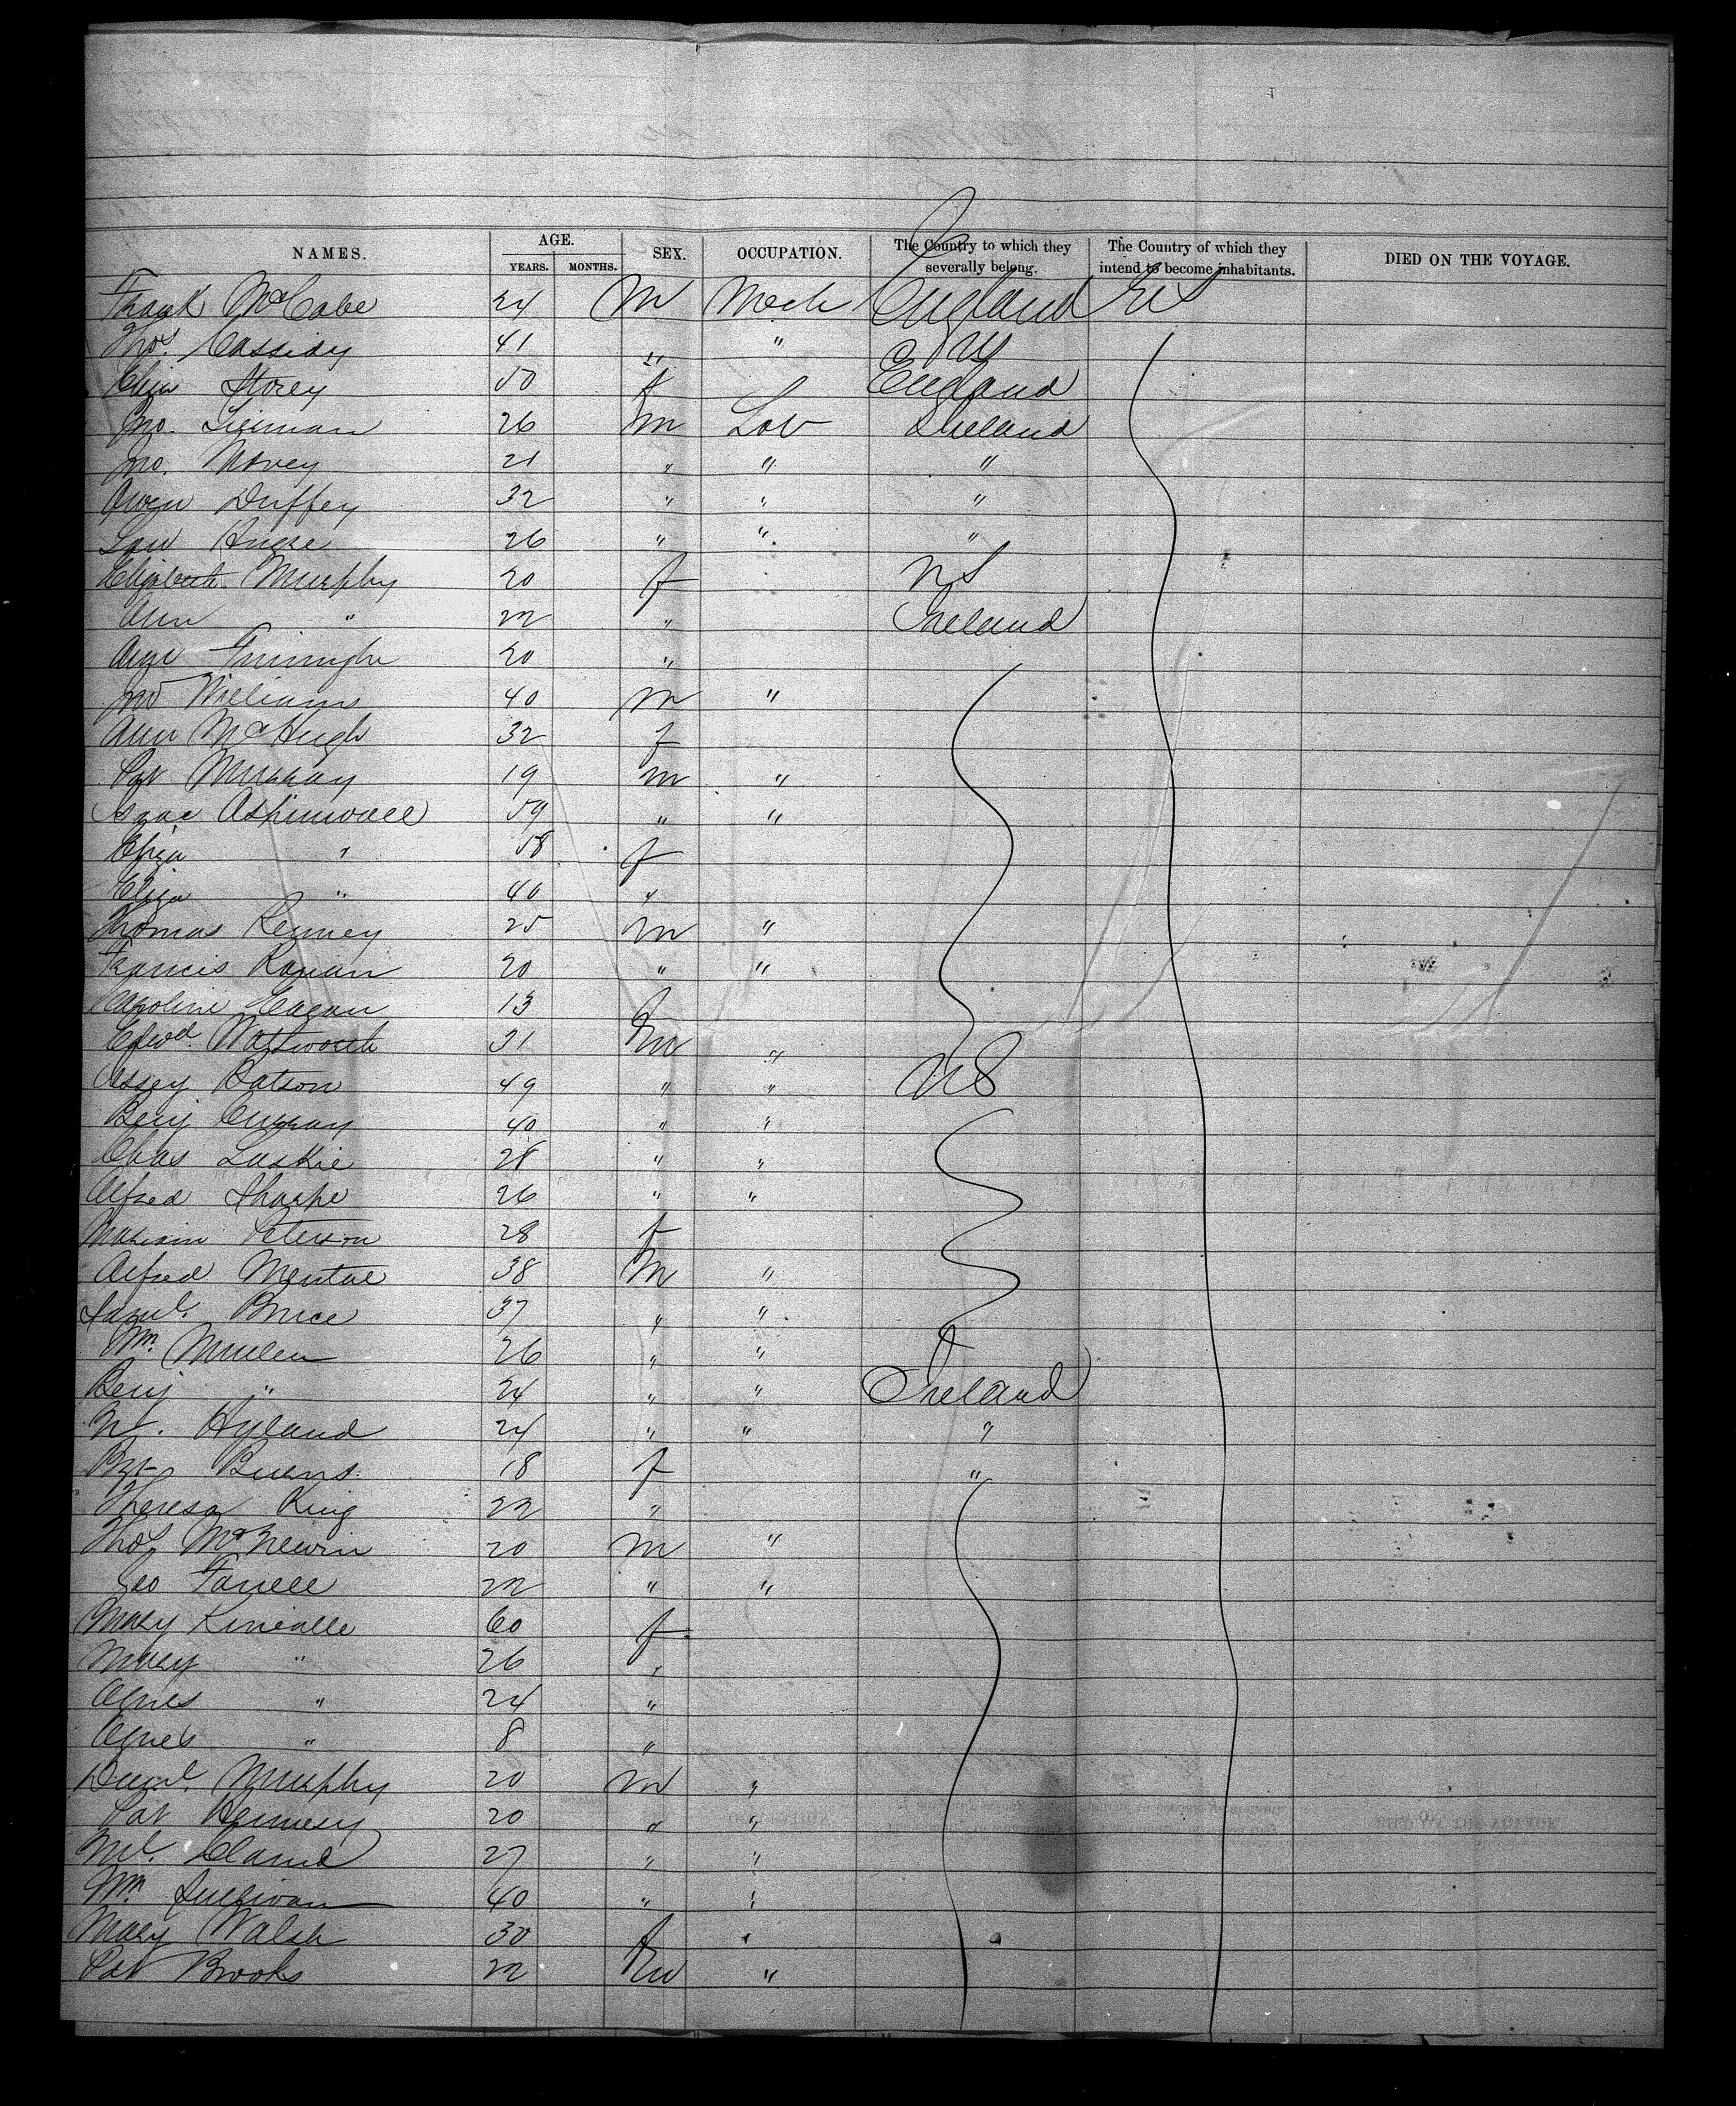 NAMES. AGE. YEARS. MONTHS. SEX. OCCUPATION. The Country to which they severally belong. The Country of which they intend to become inhabitants. DIED ON THE VOYAGE.
Frank McCabe 24 M Mech England
Thos. Cassidy 41 " "
Storey 50 f England
Jno. 26 m Lab Ireland
Jno. Novey 21 " " "
Owen Duffey 32 " " "
26 " " "
Elizabeth Murphy 20 f US
Ann " 22 " Ireland
20 "
Jno Williams 40 m "
Ann McHugh 32 f
Pat Murray 19 m "
Isaac Aspinwall 59 " "
Eliza " 58 f
Eliza " 40 "
Thomas Kenney 25 m "
Francis 20 " "
Caroline Eagan 13 f
Edwd. Wattsworth 31 m "
Batson 49 " " US
Benj Curray 40 " "
Chas Luskie 28 " "
Alfred Sharpe 26 " "
Peterson 28 f
Alfred 38 m "
Saml. Bruce 37 " "
Wm. Mullen 26 " "
Benj " 24 " " Ireland
Hyland 24 " " "
Burns 18 f "
Theresa King 22 "
Thos 20 m "
Geo Farrell 22 " "
Mary 60 f
Mary " 26 "
Agnes " 24 "
Agnes " 8 "
Danl. Murphy 20 m "
Pat Hennesy 20 " "
27 " "
Wm. Sullivan 40 " "
Mary Walsh 30 f
Pat Brooks 22 m "